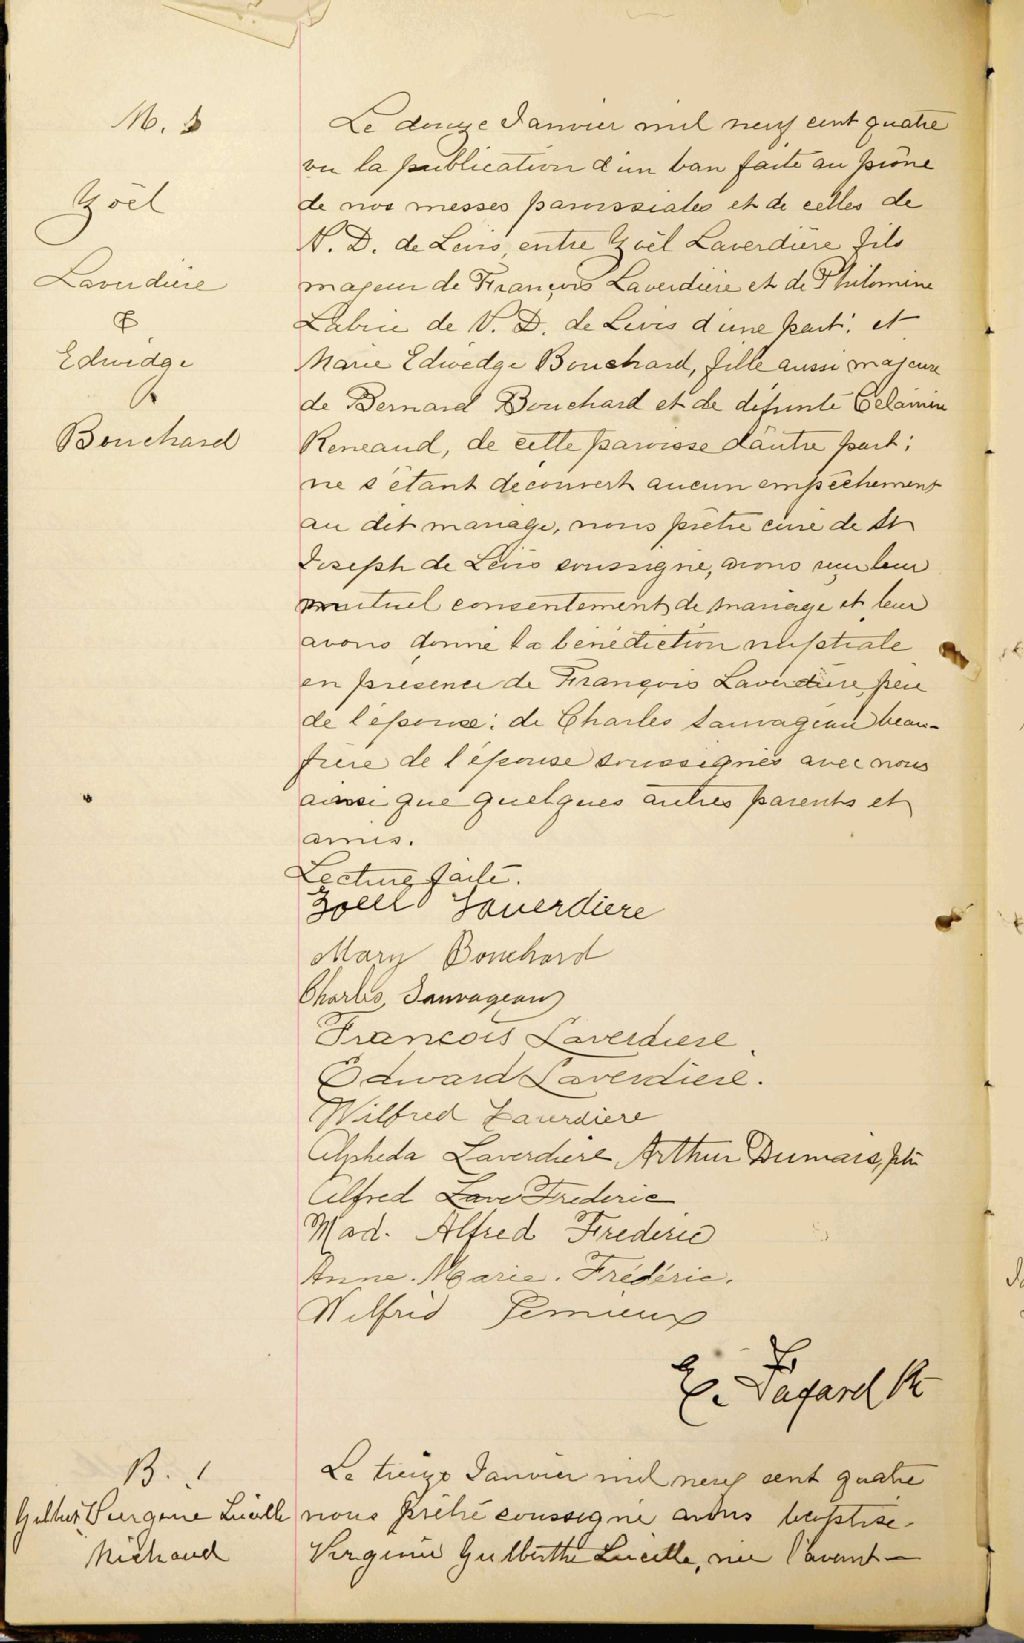 M. 1
Zoël
Laverdière
&
Edwidge
Bouchard
Le douze Janvier mil neuf cent quatre
vu la publication d'un ban faite au prône
de nos messes paroissiales et de celles de
N. D. de Lévis, entre Zoël Laverdière fils
majeur de François Laverdière et de Philomine
Labrie de N. D. de Lévis d'une part: et
Marie Edwidge Bouchard, fille aussi majeure
de Bernard Bouchard et de défunte Célanire
Reneaud, de cette paroisse d'autre part;
ne s'étant découvert aucun empêchement
au dit mariage, nous prêtre curé de St
Joseph de Lévis soussigné, avons reçu leur
mutuel consentement de mariage et leur
avons donné la bénédiction nuptiale
en présence de François Laverdière, père
de l'époux: de Charles Sauvageau beau-
frère de l'épouse soussignés avec nous
ainsi que quelques autres parents et
amis.
Lecture faite.
Zoël Laverdiere
Mary Bouchard
Charles Sauvageau
François Laverdiere
Edward Laverdière.
Wilfred Laverdiere
Alpheda Laverdière Arthur Dumais, ptre
Alfred Lave Frederic
Mad. Alfred Frederic
Anne-Marie. Frédéric.
Wilfrid Lemieux
E. Fafard Ptre
B. 1
Gilbert Virginie Lucille
Michaud
Le treize Janvier mil neuf cent quatre
nous prêtre soussigné avons baptisé
Virginie Gilberthe Lucille, née l'avant-